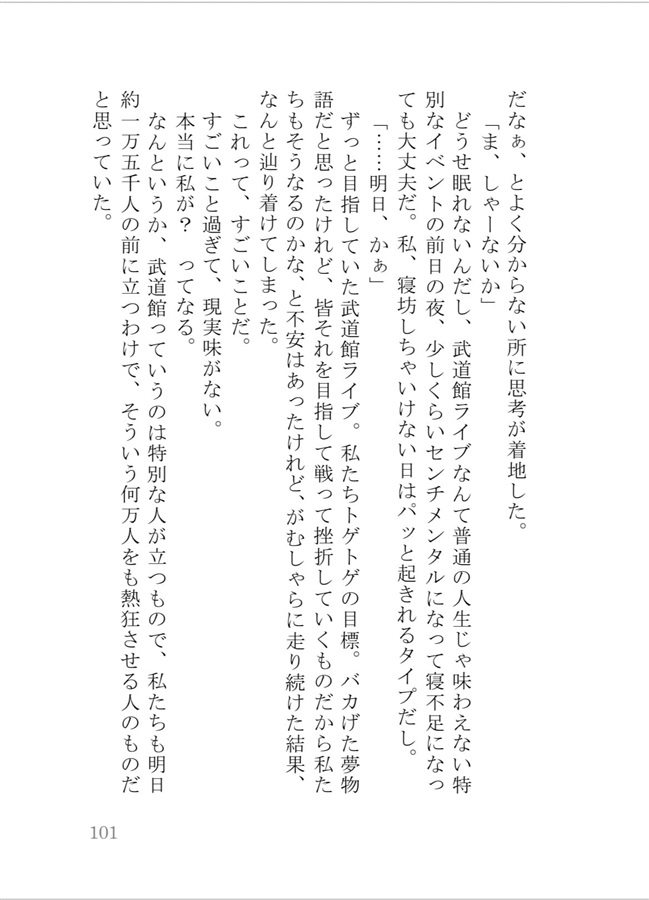 だなぁ、とよく分からない所に思考が着地した。
「ま、しゃーないか」
どうせ眠れないんだし、武道館ライブなんて普通の人生じゃ味わえない特
別なイベントの前日の夜、少しくらいセンチメンタルになって寝不足になっ
ても大丈夫だ。私、寝坊しちゃいけない日はパッと起きれるタイプだし。
「……明日、かぁ」
ずっと目指していた武道館ライブ。私たちトゲトゲの目標。バカげた夢物
語だと思ったけれど、皆それを目指して戦って挫折していくものだから私た
ちもそうなるのかな、と不安はあったけれど、がむしゃらに走り続けた結果、
なんと辿り着けてしまった。
これって、すごいことだ。
すごいこと過ぎて、現実味がない。
本当に私が？　ってなる。
なんというか、武道館っていうのは特別な人が立つもので、私たちも明日
約一万五千人の前に立つわけで、そういう何万人をも熱狂させる人のものだ
と思っていた。
101